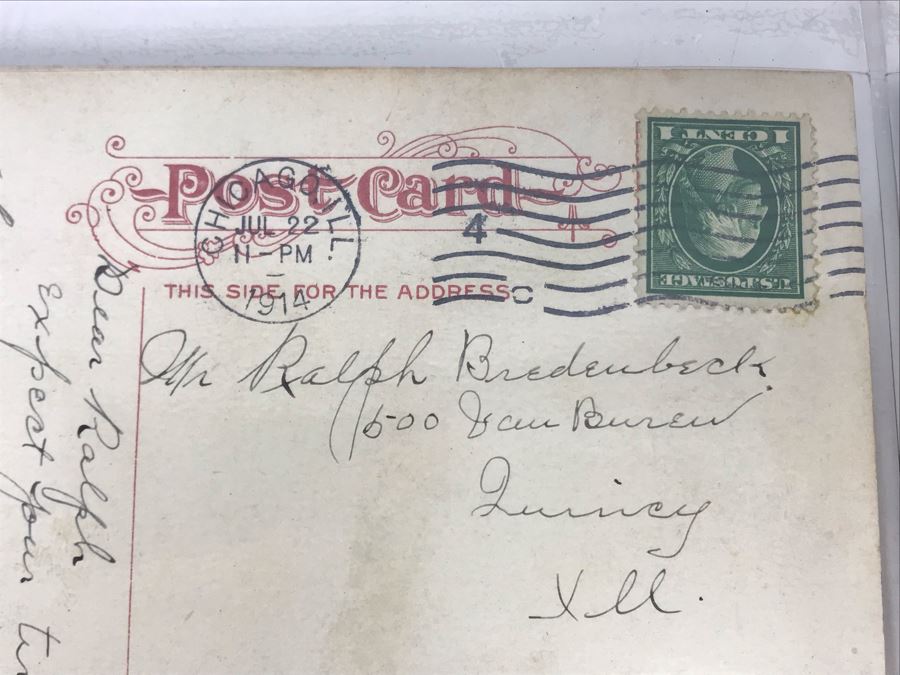 Post Card
CHICAGO, ILL.
JUL 22
11-PM
1914
4
C
1 CENT 1
U.S. POSTAGE
THIS SIDE FOR THE ADDRESS
Mr Ralph Bredenbeck.
1500 Van Buren
Quincy
Ill.
Dear Ralph
Expect your